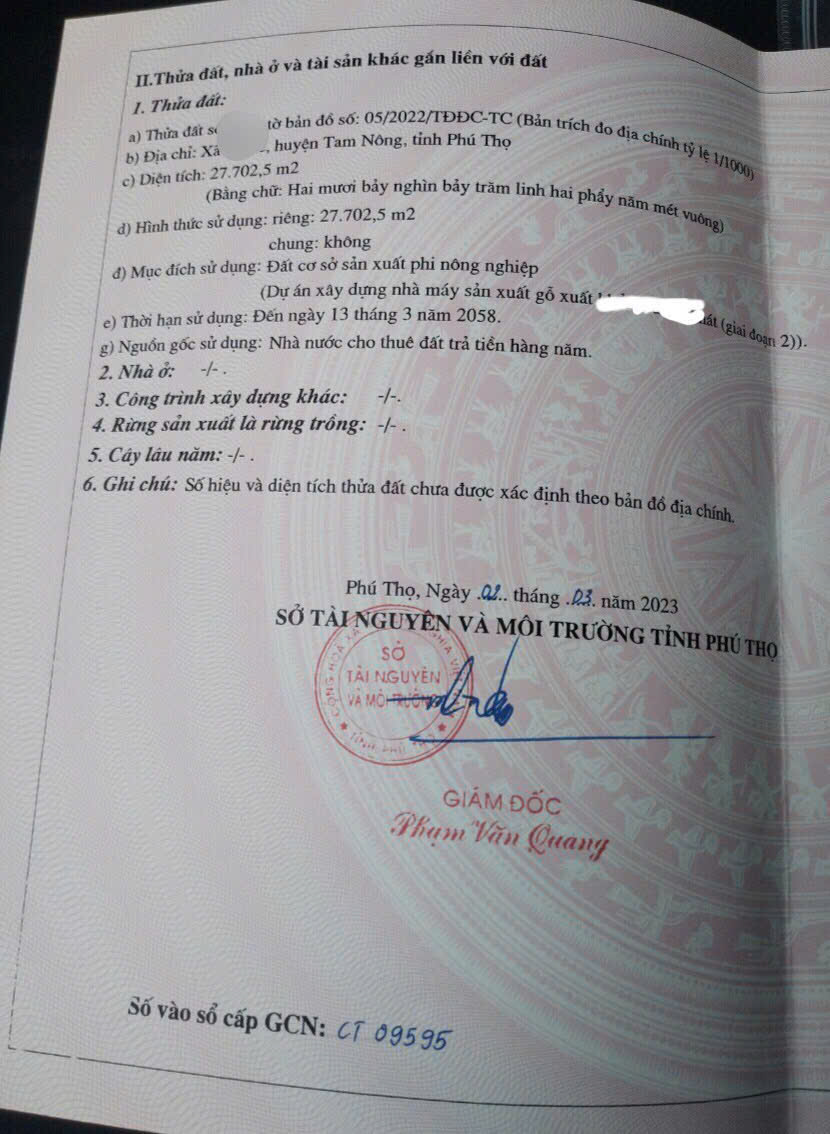 II.Thửa đất, nhà ở và tài sản khác gắn liền với đất
1. Thửa đất:
a) Thửa đất số tờ bản đồ số: 05/2022/TĐĐC-TC (Bản trích đo địa chính tỷ lệ 1/1000)
b) Địa chỉ: Xã , huyện Tam Nông, tỉnh Phú Thọ
c) Diện tích: 27.702,5 m2
(Bằng chữ: Hai mươi bảy nghìn bảy trăm linh hai phẩy năm mét vuông)
d) Hình thức sử dụng: riêng: 27.702,5 m2
chung: không
đ) Mục đích sử dụng: Đất cơ sở sản xuất phi nông nghiệp
(Dự án xây dựng nhà máy sản xuất gỗ xuất (giai đoạn 2)).
e) Thời hạn sử dụng: Đến ngày 13 tháng 3 năm 2058.
g) Nguồn gốc sử dụng: Nhà nước cho thuê đất trả tiền hàng năm.
2. Nhà ở: -/- .
3. Công trình xây dựng khác: -/-.
4. Rừng sản xuất là rừng trồng: -/- .
5. Cây lâu năm: -/- .
6. Ghi chú: Số hiệu và diện tích thửa đất chưa được xác định theo bản đồ địa chính.
Phú Thọ, Ngày .02.. tháng .03. năm 2023
SỞ TÀI NGUYÊN VÀ MÔI TRƯỜNG TỈNH PHÚ THỌ
SỞ
TÀI NGUYÊN
VÀ MÔI TRƯỜNG
GIÁM ĐỐC
Phạm Văn Quang
Số vào sổ cấp GCN: CT 09595